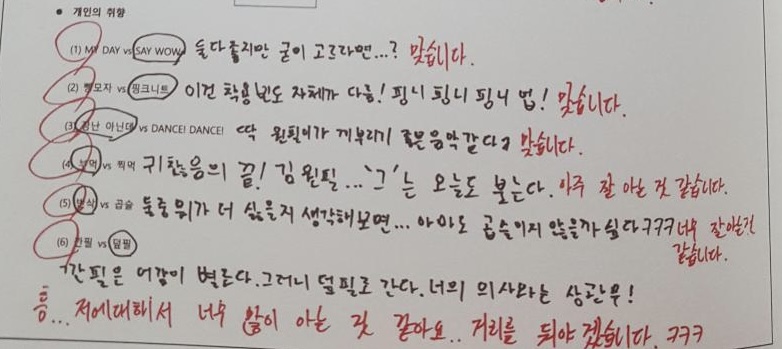 ● 개인의 취향
(1) MY DAY vs SAY WOW 둘다좋지만 굳이 고르라면...? 맞습니다.
(2) 빵모자 vs 핑크니트 이건 착용빈도 자체가 다름! 핑니 핑니 핑니 법! 맞습니다.
(3) 장난 아닌데 vs DANCE! DANCE! 딱 원필이가 끼부리기 좋은음악같다고 맞습니다.
(4) 부먹 vs 찍먹 귀찮음의 끝! 김원필...'그'는 오늘도 붓는다. 아주 잘 아는 것 같습니다.
(5) 반삭 vs 곱슬 둘중 뭐가 더 싫을지 생각해보면... 아마도 곱슬이지 않을까 싶다ㅋㅋㅋ 너무 잘아는것
같습니다.
(6) 깐필 vs 덮필
깐필은 어감이 별로다. 그러니 덮필로 간다. 너의 의사와는 상관무!
흠... 저에대해서 너무 많이 아는 것 같아요.. 거리를 둬야 겠습니다. ㅋㅋㅋ